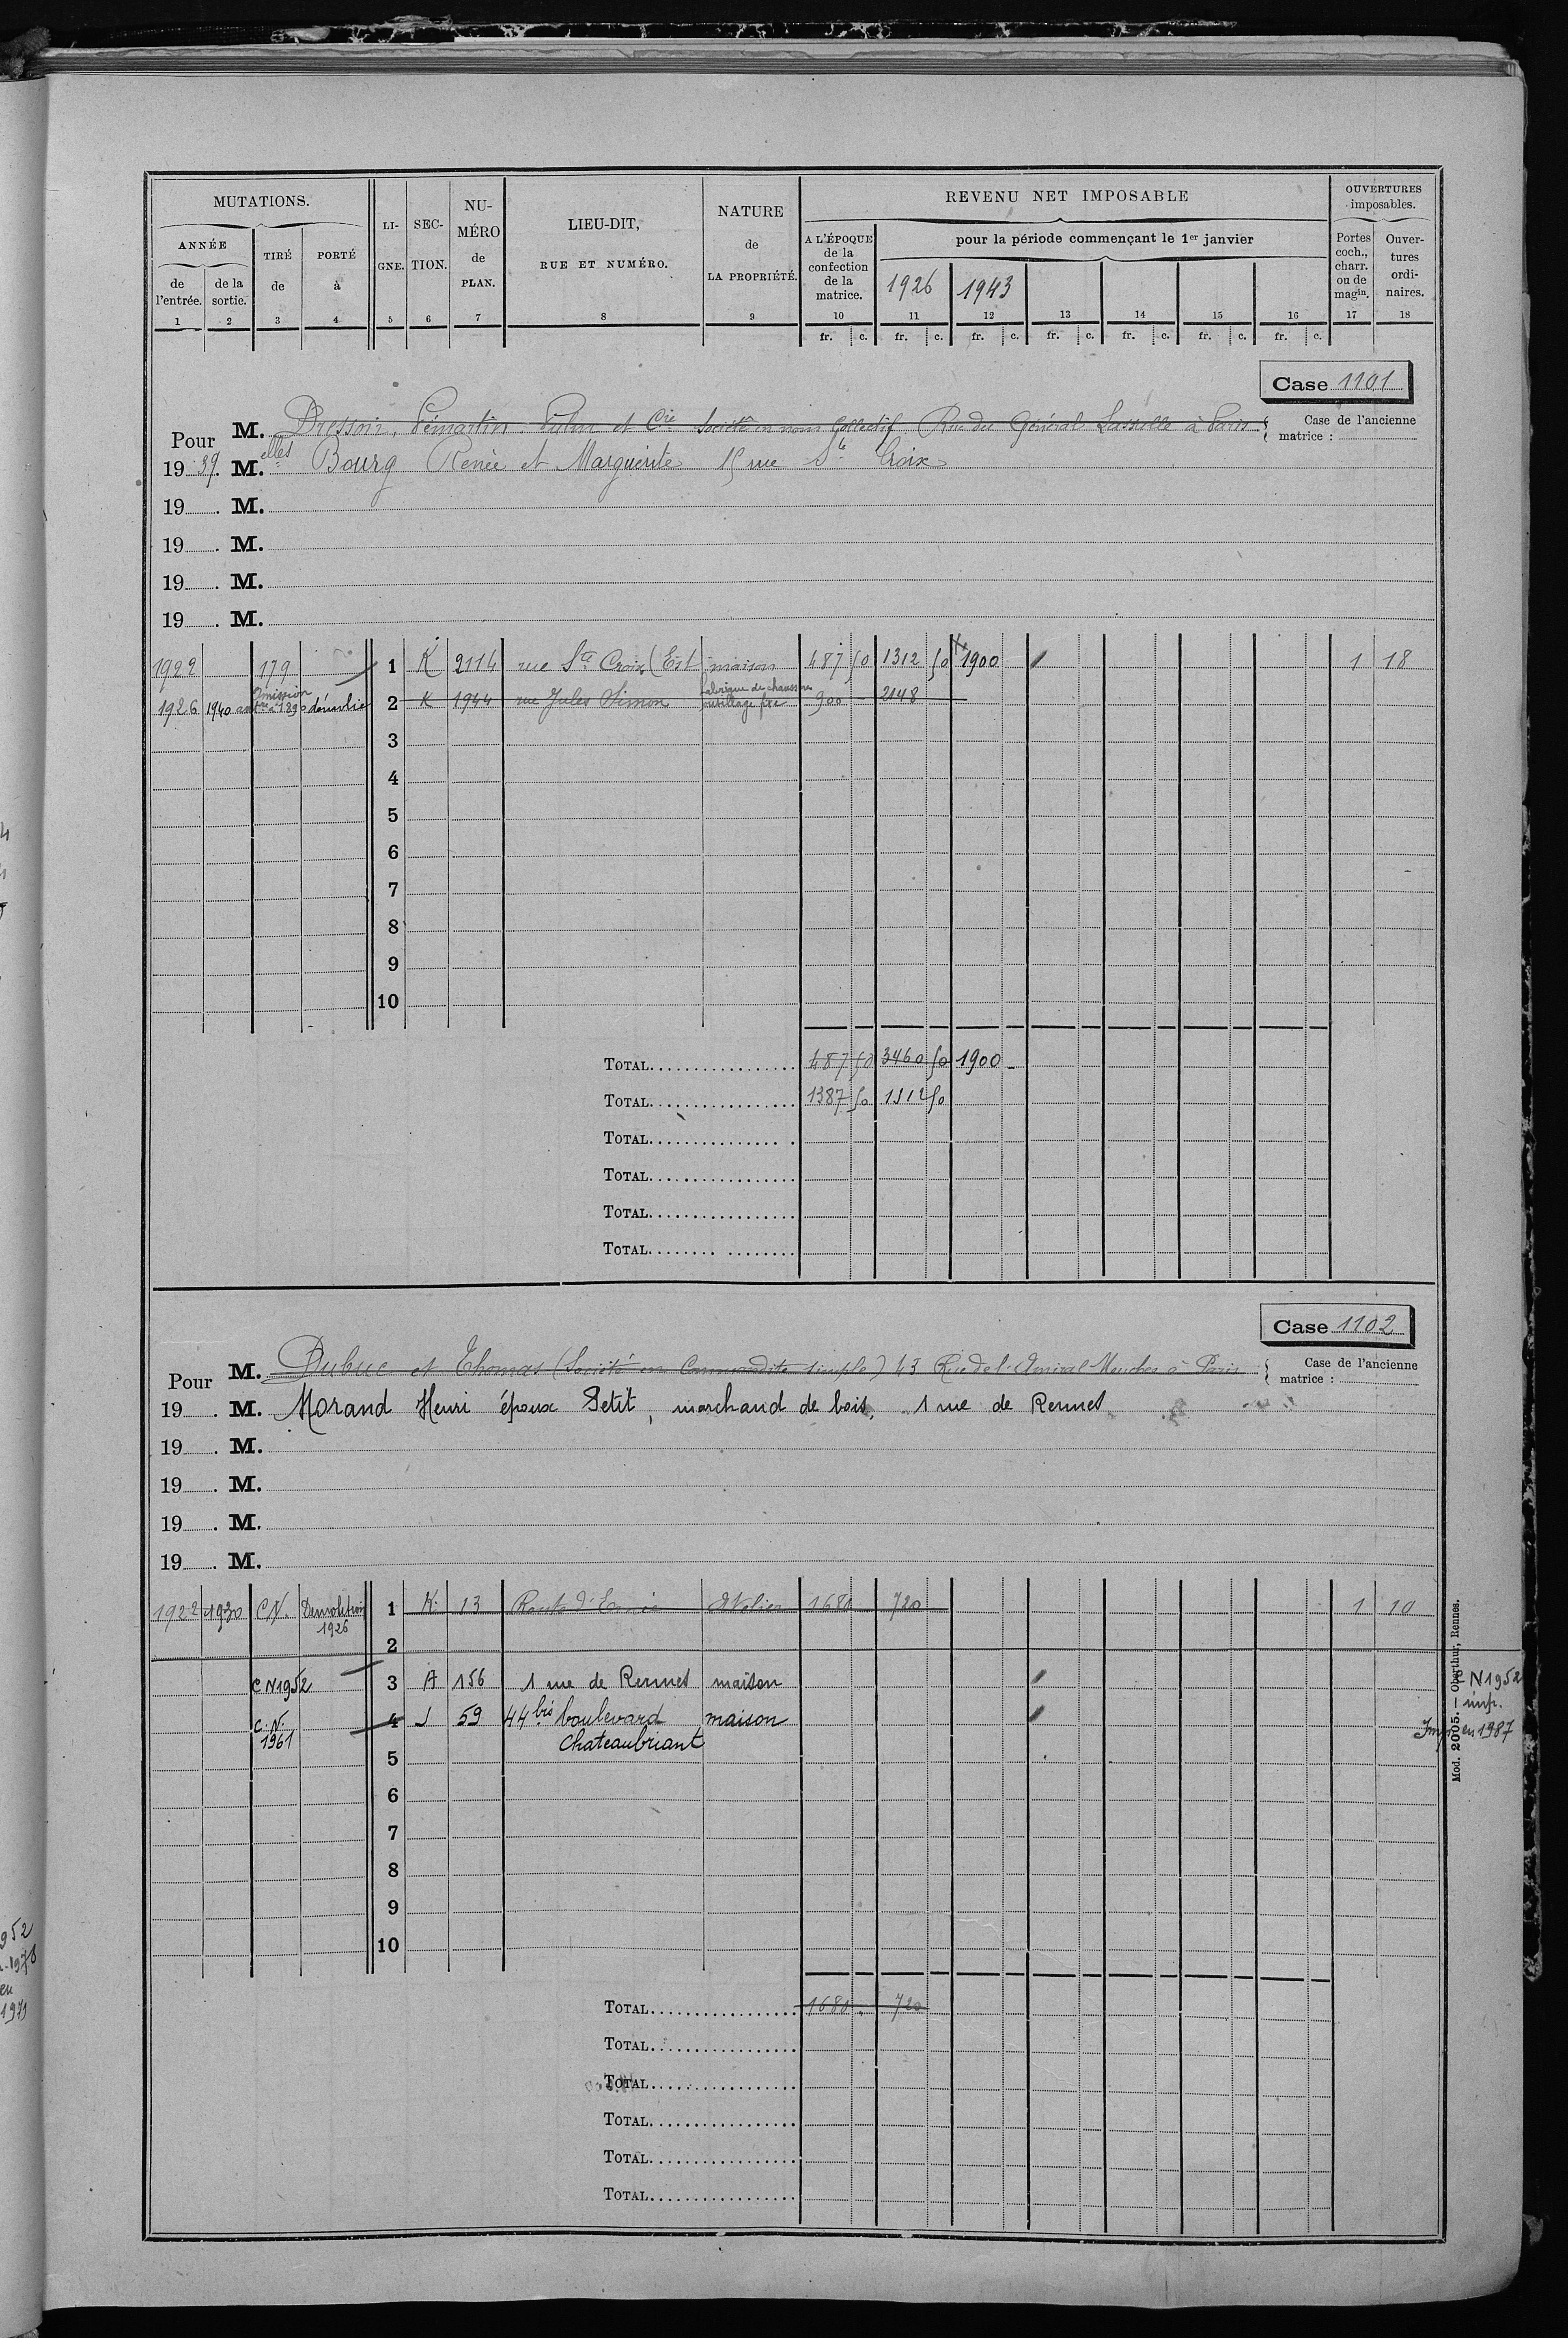 MUTATIONS.
ANNÉE
de l'entrée.
de la sortie.
TIRÉ de
PORTÉ à
LI-GNE.
SEC-TION.
NU-MÉRO de PLAN.
LIEU-DIT,
RUE ET NUMÉRO.
NATURE de LA PROPRIÉTÉ.
REVENU NET IMPOSABLE
A L'ÉPOQUE de la confection de la matrice.
pour la période commençant le 1er janvier
1926 1943
OUVERTURES imposables.
Portes coch., charr. ou de magin.
Ouver-tures ordi-naires.
1 2 3 4 5 6 7 8 9 10 11 12 13 14 15 16 17 18
fr. c. fr. c. fr. c. fr. c. fr. c. fr. c. fr. c.
Case 1101
Pour M. Dressoir, Pémartin et Cie Société en nom Collectif Rue du Général Lassalle à Paris
Case de l'ancienne matrice :
1939. M.elles Bourg Renée et Marguerite 15 rue Ste Croix
19 . M.
19 . M.
19 . M.
19 . M.
1922 179 1 K 2114 rue Ste Croix (Est maison 487 50 1312 50 1900 1 18
1926 1940 Omission 1890 démolie 2 K 1944 rue Jules Simon fabrique de chaussures outillage fixe 900 - 2148 -
3
4
5
6
7
8
9
10
TOTAL 487 50 3460 50 1900 -
TOTAL 1387 50 1312 50
TOTAL
TOTAL
TOTAL
TOTAL
Case 1102
Pour M. Dubuc et Thomas (Société en Commandite simple) 43 Rue de l'Amiral Mouchez à Paris
Case de l'ancienne matrice :
19 . M. Morand Henri époux Petit, marchand de bois, 1 rue de Rennes
19 . M.
19 . M.
19 . M.
19 . M.
1922 1930 C.N. Demolition 1926 1 K 13 Route d'Ernée Atelier 1680 720 1 10
2
C N 1952 3 A 156 1 rue de Rennes maison C N 1952 imp.
C.N. 1961 4 J 59 44 bis boulevard Chateaubriant maison Imp en 1987
5
6
7
8
9
10
TOTAL 1680 . 720
TOTAL
TOTAL
TOTAL
TOTAL
TOTAL
Mod. 2005. — Oberthur, Rennes.